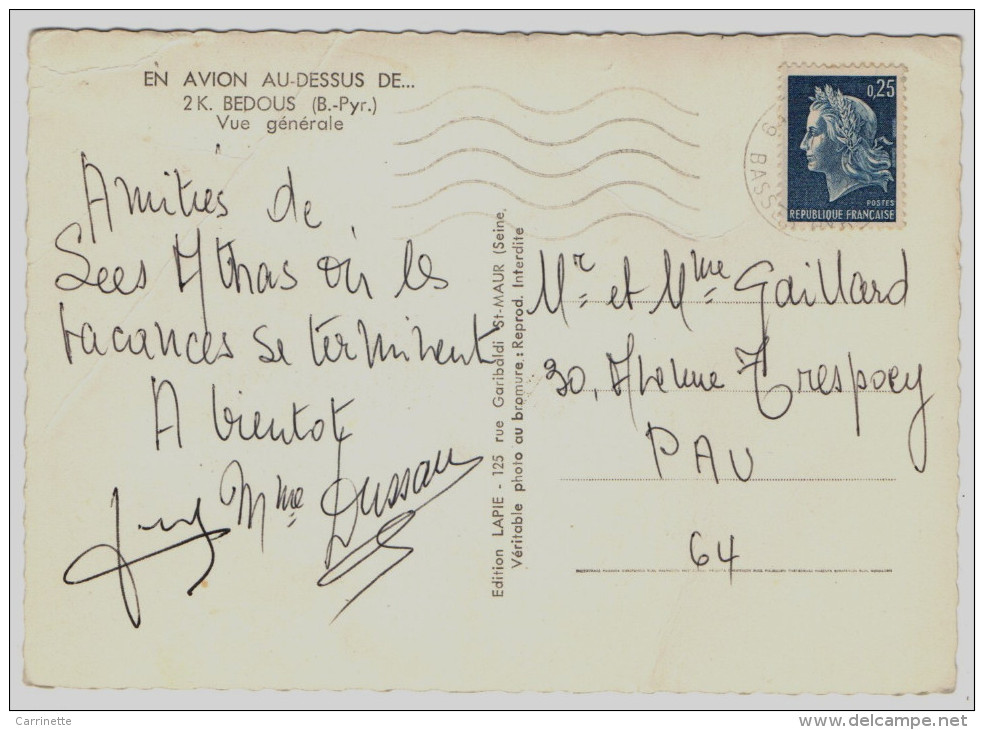 EN AVION AU-DESSUS DE...
2 K. BEDOUS (B.-Pyr.)
Vue générale
Amitiés de
Lees Athas où les
vacances se terminent
A bientot
Mme Dussau
Edition LAPIE - 125 rue Garibaldi St-MAUR (Seine)
Véritable photo au bromure : Reprod. Interdite
0,25
POSTES
REPUBLIQUE FRANÇAISE
BASS
Mr et Mme Gaillard
30, Avenue Trespoey
PAU
64
Carrinette
delcampe.net